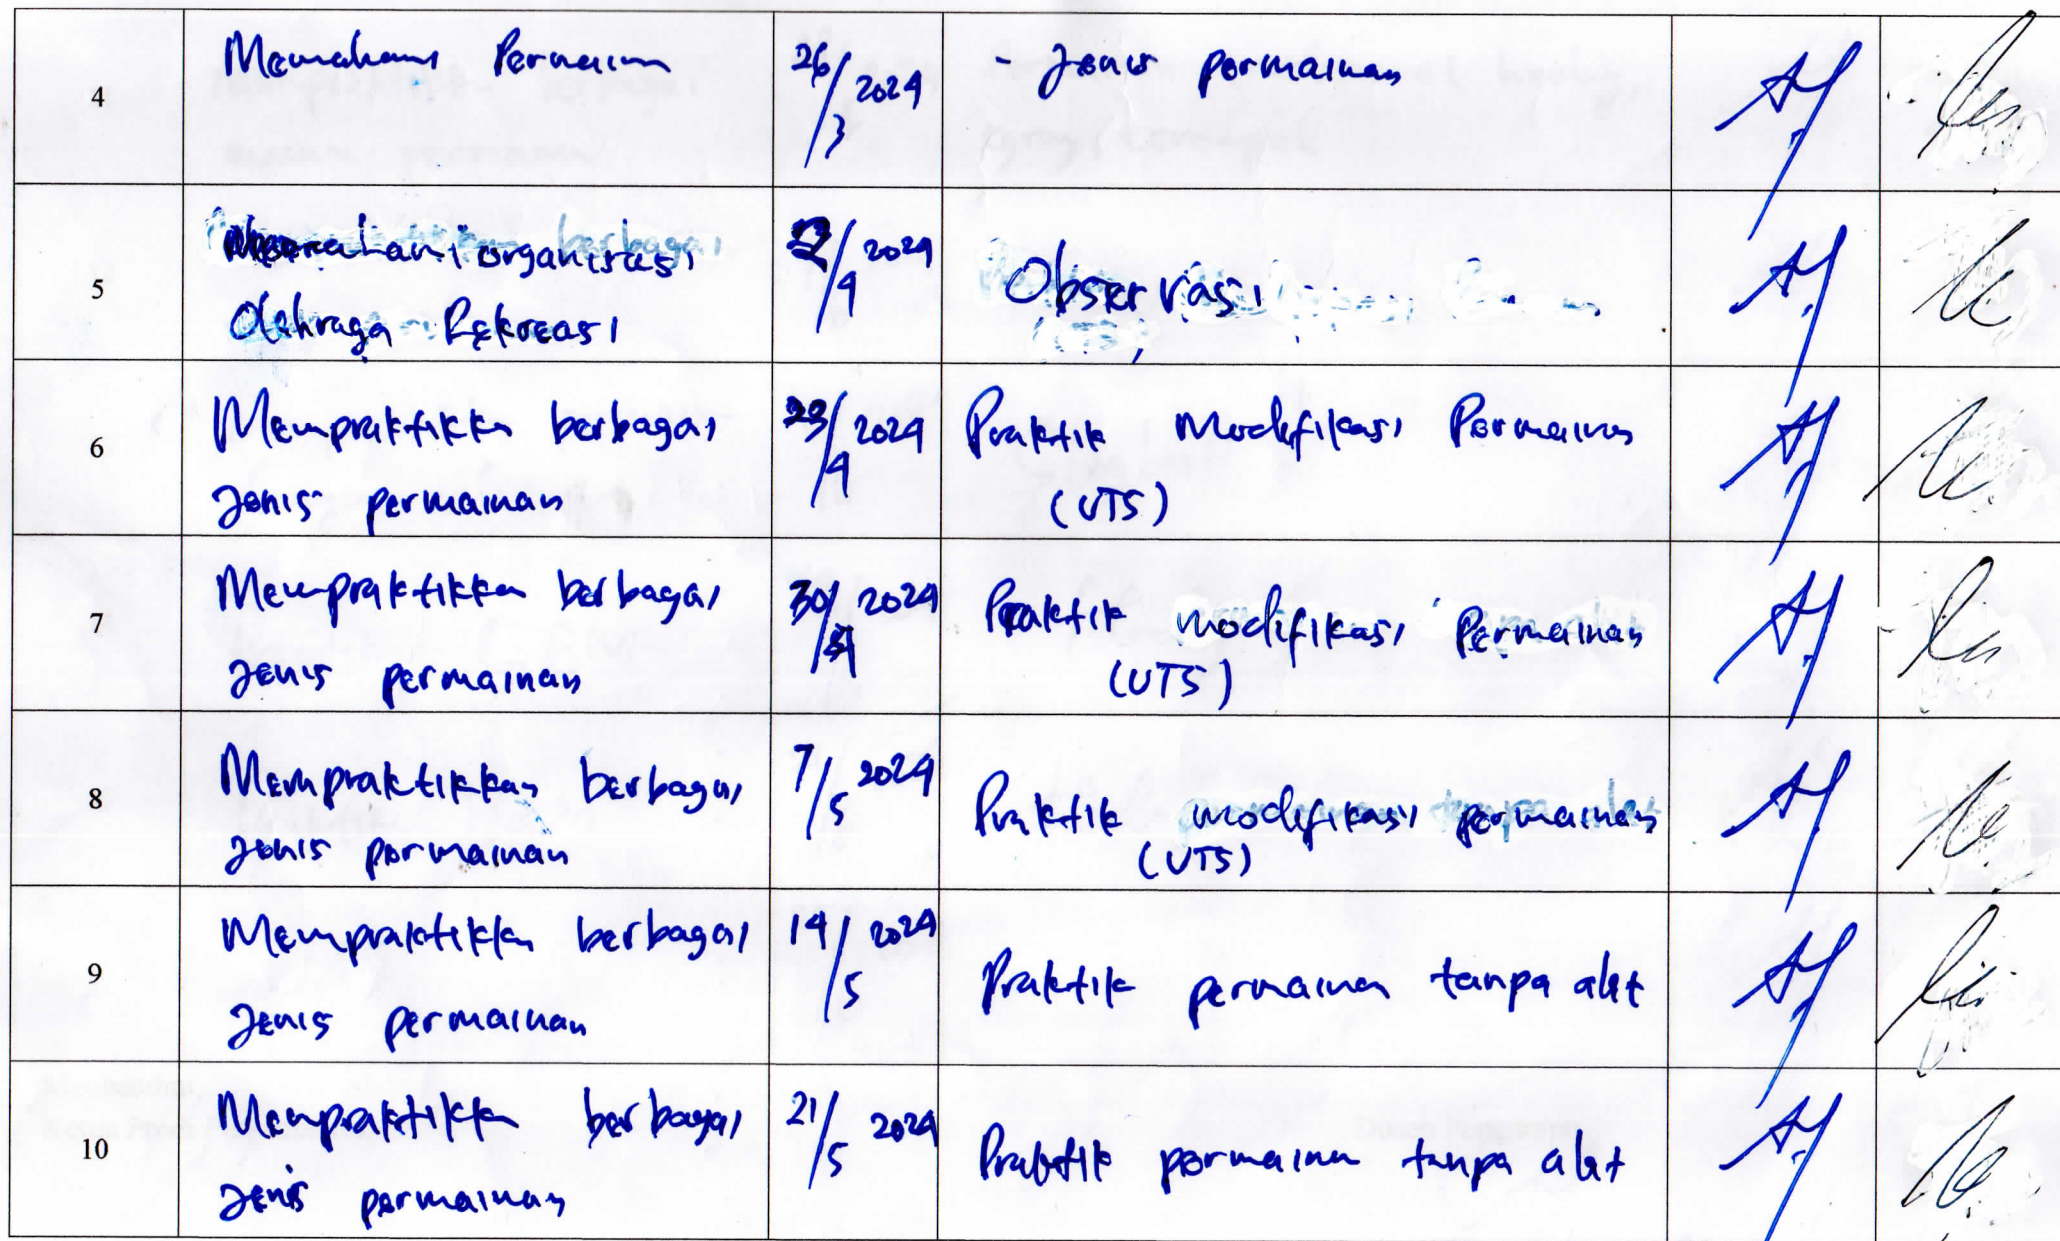 4
Memahami Permainan
26/3 2024
- Jenis permainan
5
Memahami organisasi
Olahraga Rekreasi
2/4 2024
Observasi
6
Mempraktikkan berbagai
Jenis permainan
23/4 2024
Praktik Modifikasi Permainan
(UTS)
7
Mempraktikkan berbagai
Jenis permainan
30/4 2024
Praktik modifikasi Permainan
(UTS)
8
Mempraktikkan berbagai
Jenis permainan
7/5 2024
Praktik modifikasi permainan
(UTS)
9
Mempraktikkan berbagai
Jenis permainan
14/5 2024
Praktik permainan tanpa alat
10
Mempraktikkan berbagai
Jenis permainan
21/5 2024
Praktik permainan tanpa alat